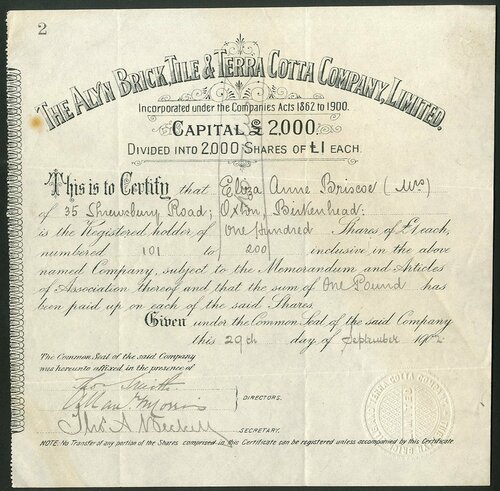 2
THE ALYN BRICK TILE & TERRA COTTA COMPANY, LIMITED.
Incorporated under the Companies Acts 1862 to 1900.
CAPITAL £ 2,000.
DIVIDED INTO 2,000 SHARES OF £1 EACH.
This is to Certify that Eliza Anne Briscoe (Mrs)
of 35 Shrewsbury Road, Oxton, Birkenhead.
is the Registered holder of One Hundred Shares of £1 each,
numbered 101 to 200 inclusive in the above
named Company, subject to the Memorandum and Articles
of Association thereof and that the sum of One Pound has
been paid up on each of the said Shares.
Given under the Common Seal of the said Company
this 29th day of September 1902.
The Common Seal of the said Company
was hereunto affixed in the presence of
DIRECTORS.
SECRETARY.
NOTE: No Transfer of any portion of the Shares comprised in this Certificate can be registered unless accompanied by this Certificate